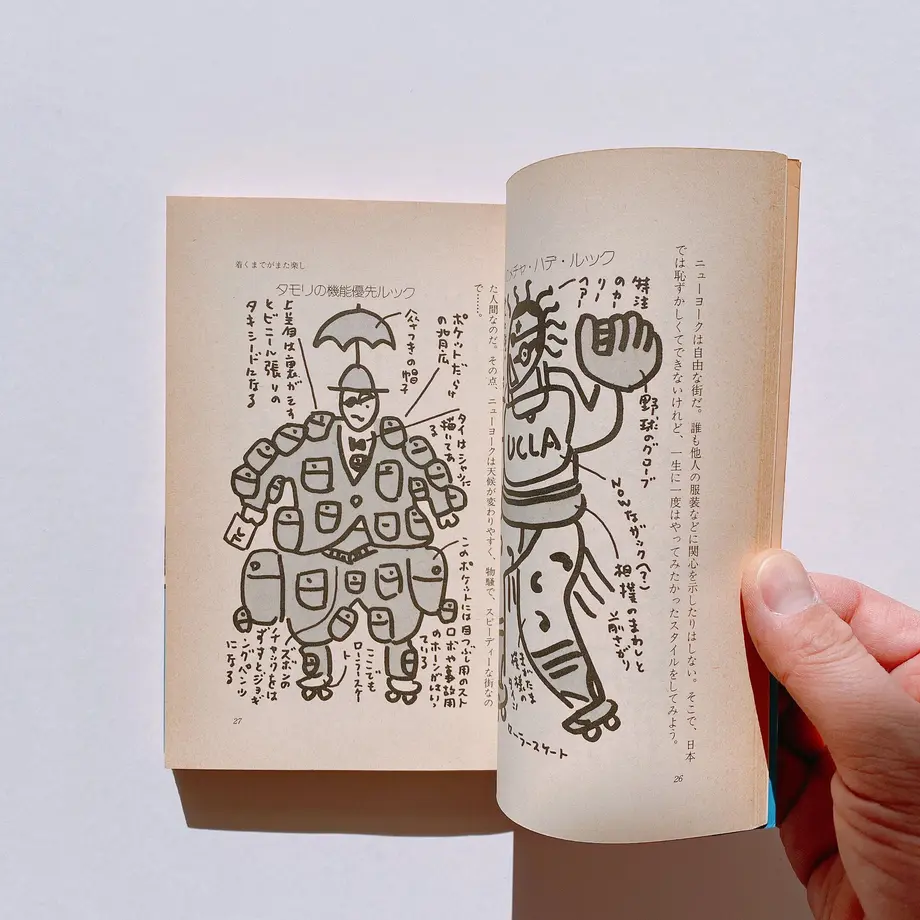 ニューヨークは自由な街だ。誰も他人の服装などに関心を示したりはしない。そこで、日本
では恥ずかしくてできないけれど、一生に一度はやってみたかったスタイルをしてみよう。
メチャ・ハデ・ルック
特注
のカー
リー
ヘアー
野球のグローブ
ULLA
NOWなガック(?)
相撲のまわしと
前さがり
ローラースケート
26
た人間なのだ。その点、ニューヨークは天候が変わりやすく、物騒で、スピーディーな街なの
で……。
着くまでがまた楽し
タモリの機能優先ルック
ポケットだらけ
の背広
傘つきの帽子
上半身は裏がえす
とビニール張りの
タキシードになる
タイはシャツに
描いてある
このポケットには目つぶし用のスト
ロボや事故用
のホーンがはいっ
ている
ここでも
ローラースケー
ト
ズボンの
チャックをは
ずすとジョギ
ングパンツ
になる
27